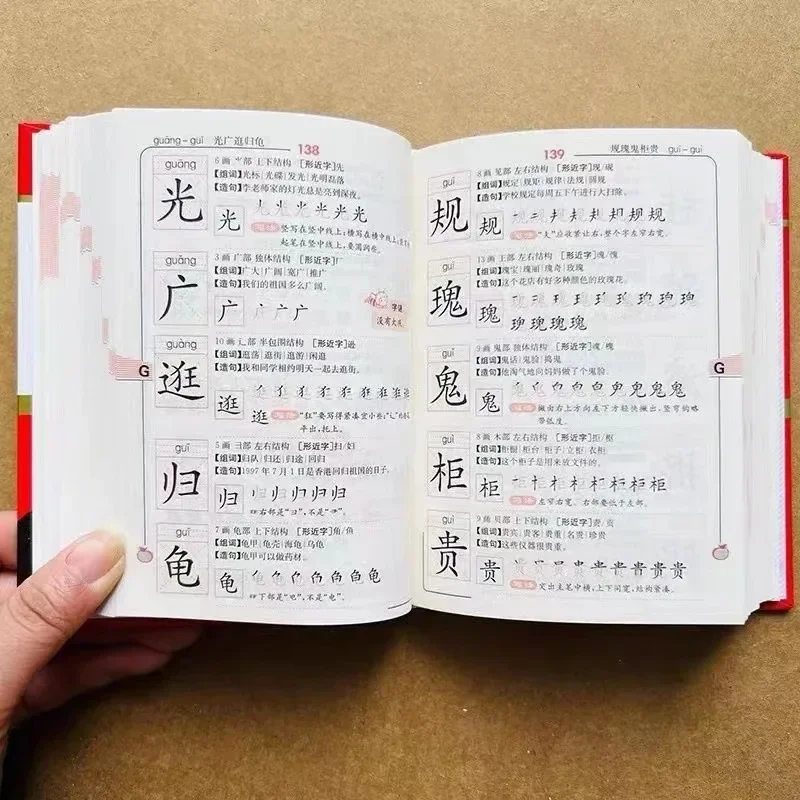 guāng-guī 光广逛归龟
138
guāng
光
6画 ⺌部 上下结构 [形近字]先
[组词]光标|光碟|发光|光明磊落
[造句]李老师家的灯光总是亮到深夜。
光
竖写在竖中线上;横写在横中线上;
起笔在竖中线上,要
guǎng
广
3画 广部 独体结构 [形近字]厂
[组词]广大|广阔|宽广|推广
[造句]我们的祖国多么广阔。
广
字谜
没有大
guàng
逛
10画 辶部 半包围结构 [形近字]逊
[组词]逛荡|逛街|逛游|闲逛
[造句]我和同学相约明天一起去逛街。
逛
逛
笔法 "狂"要写得紧凑窄小些;"辶"的
平出,托上。
G
guī
归
5画 彐部 左右结构 [形近字]扫/妇
[组词]归队|归还|归途|回归
[造句]1997年7月1日是香港回归祖国的日子。
归
右部是"彐",不是
guī
龟
7画 龟部 上下结构 [形近字]角/鱼
[组词]龟甲|龟壳|海龟|乌龟
[造句]龟甲可以做药材。
龟
下部是"电",不是"电"。
139
规瑰鬼柜贵 guī-guì
guī
规
8画 见部 左右结构 [形近字]现/砚
[组词]规定|规矩|规律|法规|圆规
[造句]学校规定每周五下午进行大扫除。
规
笔法 "夫"应收紧让右,整个字左窄右宽。
guī
瑰
13画 王部 左右结构 [形近字]魂/愧
[组词]瑰宝|瑰丽|瑰奇|玫瑰
[造句]这个花店有好多种颜色的玫瑰花。
瑰
guǐ
鬼
9画 鬼部 独体结构 [形近字]魂/槐
[组词]鬼话|鬼脸|捣鬼
[造句]他淘气地向妈妈做了个鬼脸。
鬼
笔法 撇由右上方向左下方轻快撇出,竖弯钩略
带弧度。
G
guì
柜
8画 木部 左右结构 [形近字]拒/框
[组词]柜橱|柜台|柜子|立柜|衣柜
[造句]这个柜子是用来放文件的。
柜
笔法 左窄右宽。右部要低于左部。
guì
贵
9画 贝部 上下结构 [形近字]责/贡
[组词]贵宾|贵客|贵重|名贵|珍贵
[造句]这些仪器很贵重。
贵
笔法 突出主笔中横,上下同宽,结构紧凑。